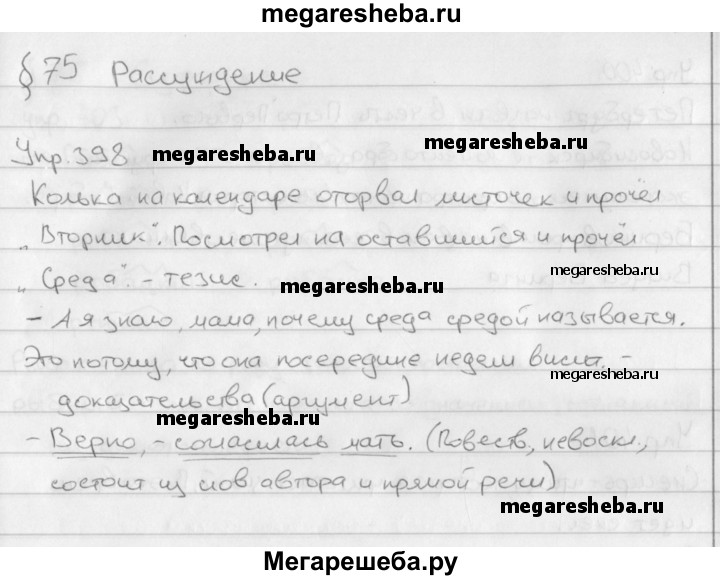 megaresheba.ru
§75 Рассуждение
Упр.398 megaresheba.ru megaresheba.ru
Колька на календаре оторвал листочек и прочёл
„Вторник“. Посмотрел на оставшийся и прочёл
„Среда“. – тезис. megaresheba.ru megaresheba.ru
– А я знаю, мама, почему среда средой называется.
Это потому, что она посередине недели висит. –
доказательства (аргумент) megaresheba.ru
megaresheba.ru
– Верно, – согласилась мать. (Повеств., невоскл.,
состоит из слов автора и прямой речи)
megaresheba.ru
Мегарешеба.ру